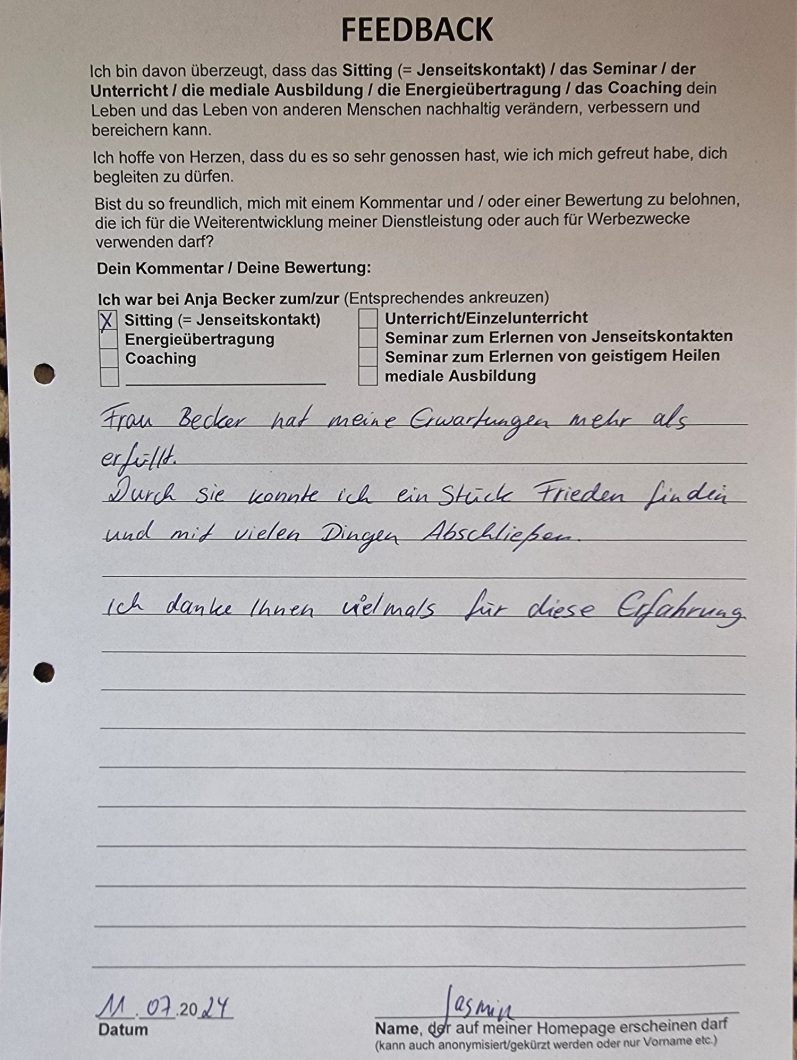 FEEDBACK
Ich bin davon überzeugt, dass das Sitting (= Jenseitskontakt) / das Seminar / der
Unterricht / die mediale Ausbildung / die Energieübertragung / das Coaching dein
Leben und das Leben von anderen Menschen nachhaltig verändern, verbessern und
bereichern kann.
Ich hoffe von Herzen, dass du es so sehr genossen hast, wie ich mich gefreut habe, dich
begleiten zu dürfen.
Bist du so freundlich, mich mit einem Kommentar und / oder einer Bewertung zu belohnen,
die ich für die Weiterentwicklung meiner Dienstleistung oder auch für Werbezwecke
verwenden darf?
Dein Kommentar / Deine Bewertung:
Ich war bei Anja Becker zum/zur (Entsprechendes ankreuzen)
X Sitting (= Jenseitskontakt)
Energieübertragung
Coaching
Unterricht/Einzelunterricht
Seminar zum Erlernen von Jenseitskontakten
Seminar zum Erlernen von geistigem Heilen
mediale Ausbildung
Frau Becker hat meine Erwartungen mehr als
erfüllt.
Durch sie konnte ich ein Stück Frieden finden
und mit vielen Dingen Abschließen.
Ich danke Ihnen vielmals für diese Erfahrung
11.07.2024
Datum
Jasmin
Name, der auf meiner Homepage erscheinen darf
(kann auch anonymisiert/gekürzt werden oder nur Vorname etc.)